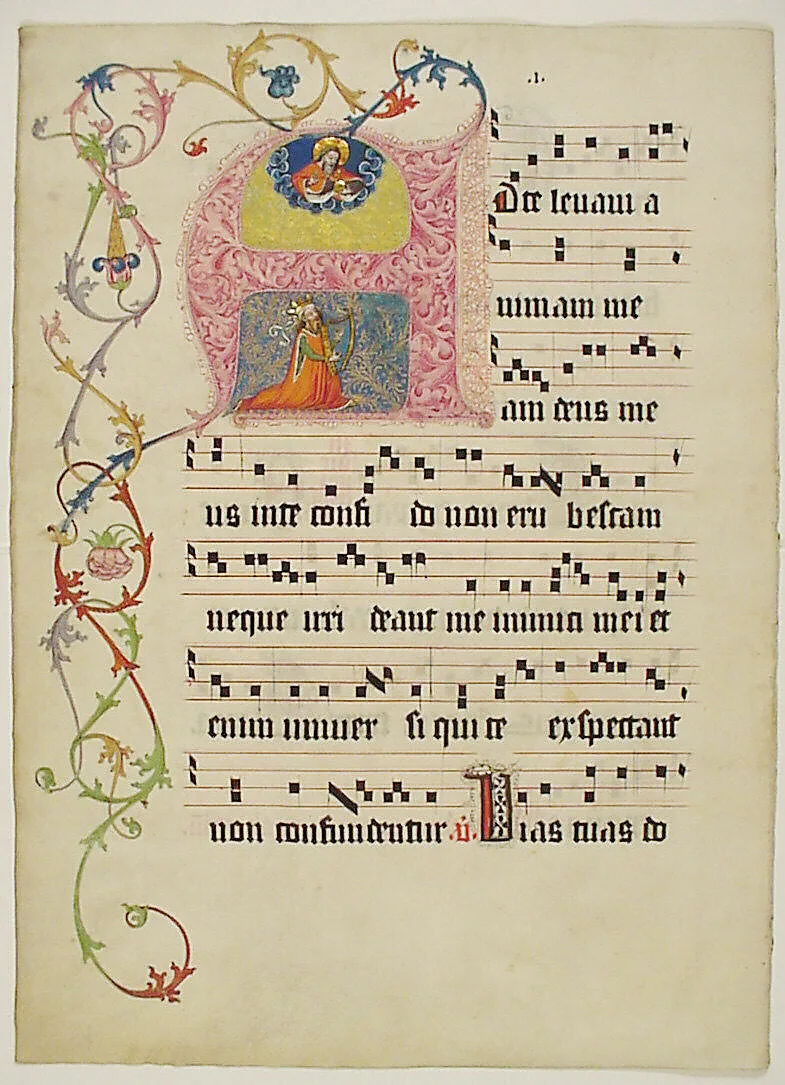 .1.
A Dte levavi a
nimam me
am deus me
us in te confi do non eru bescam
neque irri deant me inimici mei et
enim univer si qui te exspectant
non confundentur .v. Vias tuas do